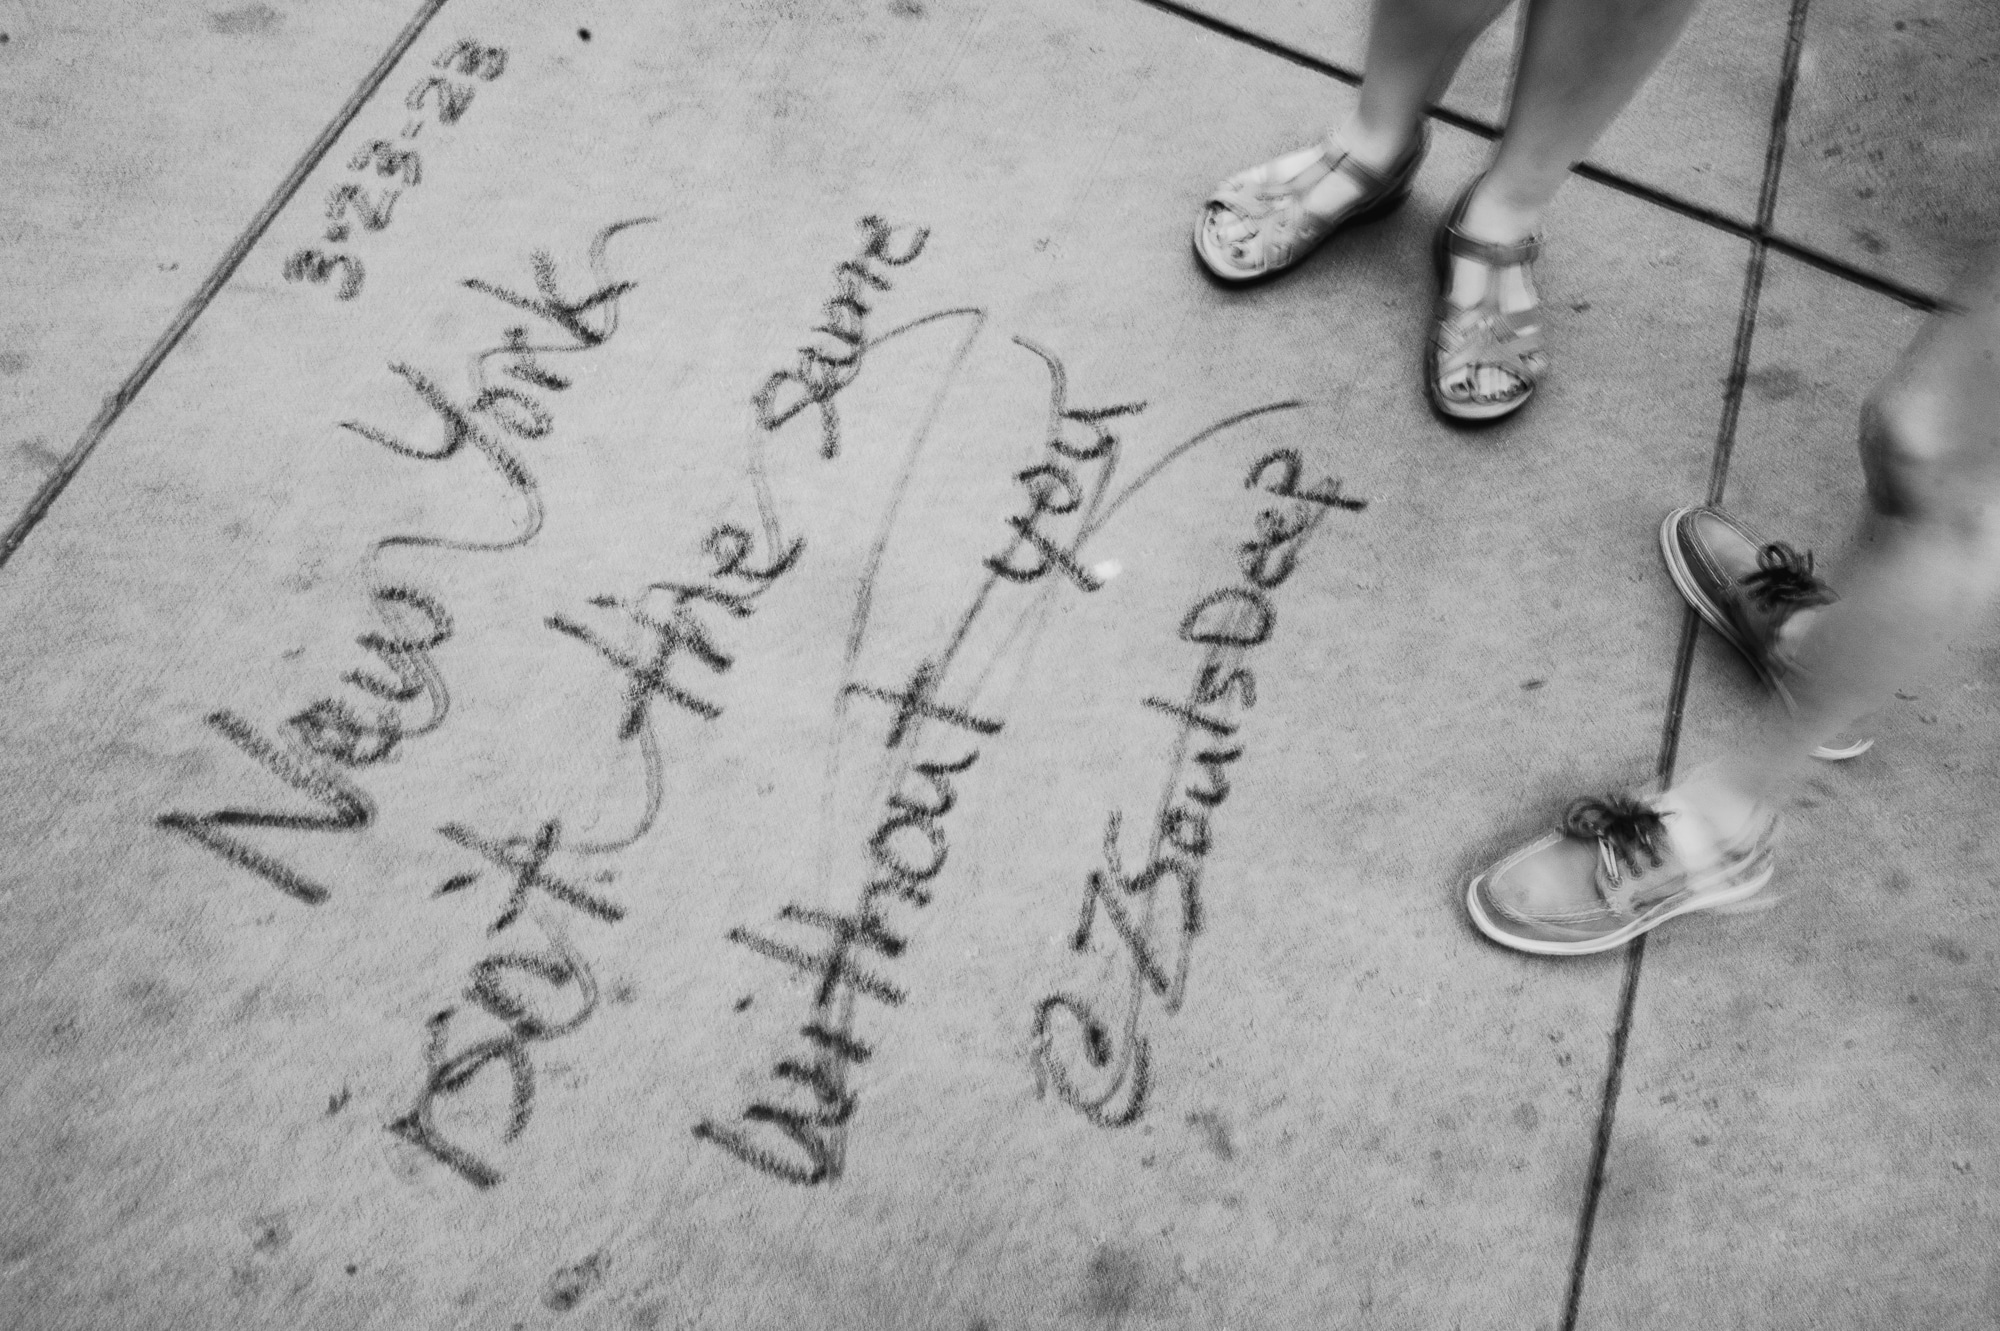 3-23-23
New York
not the same
without you
@ZSaintsDeep